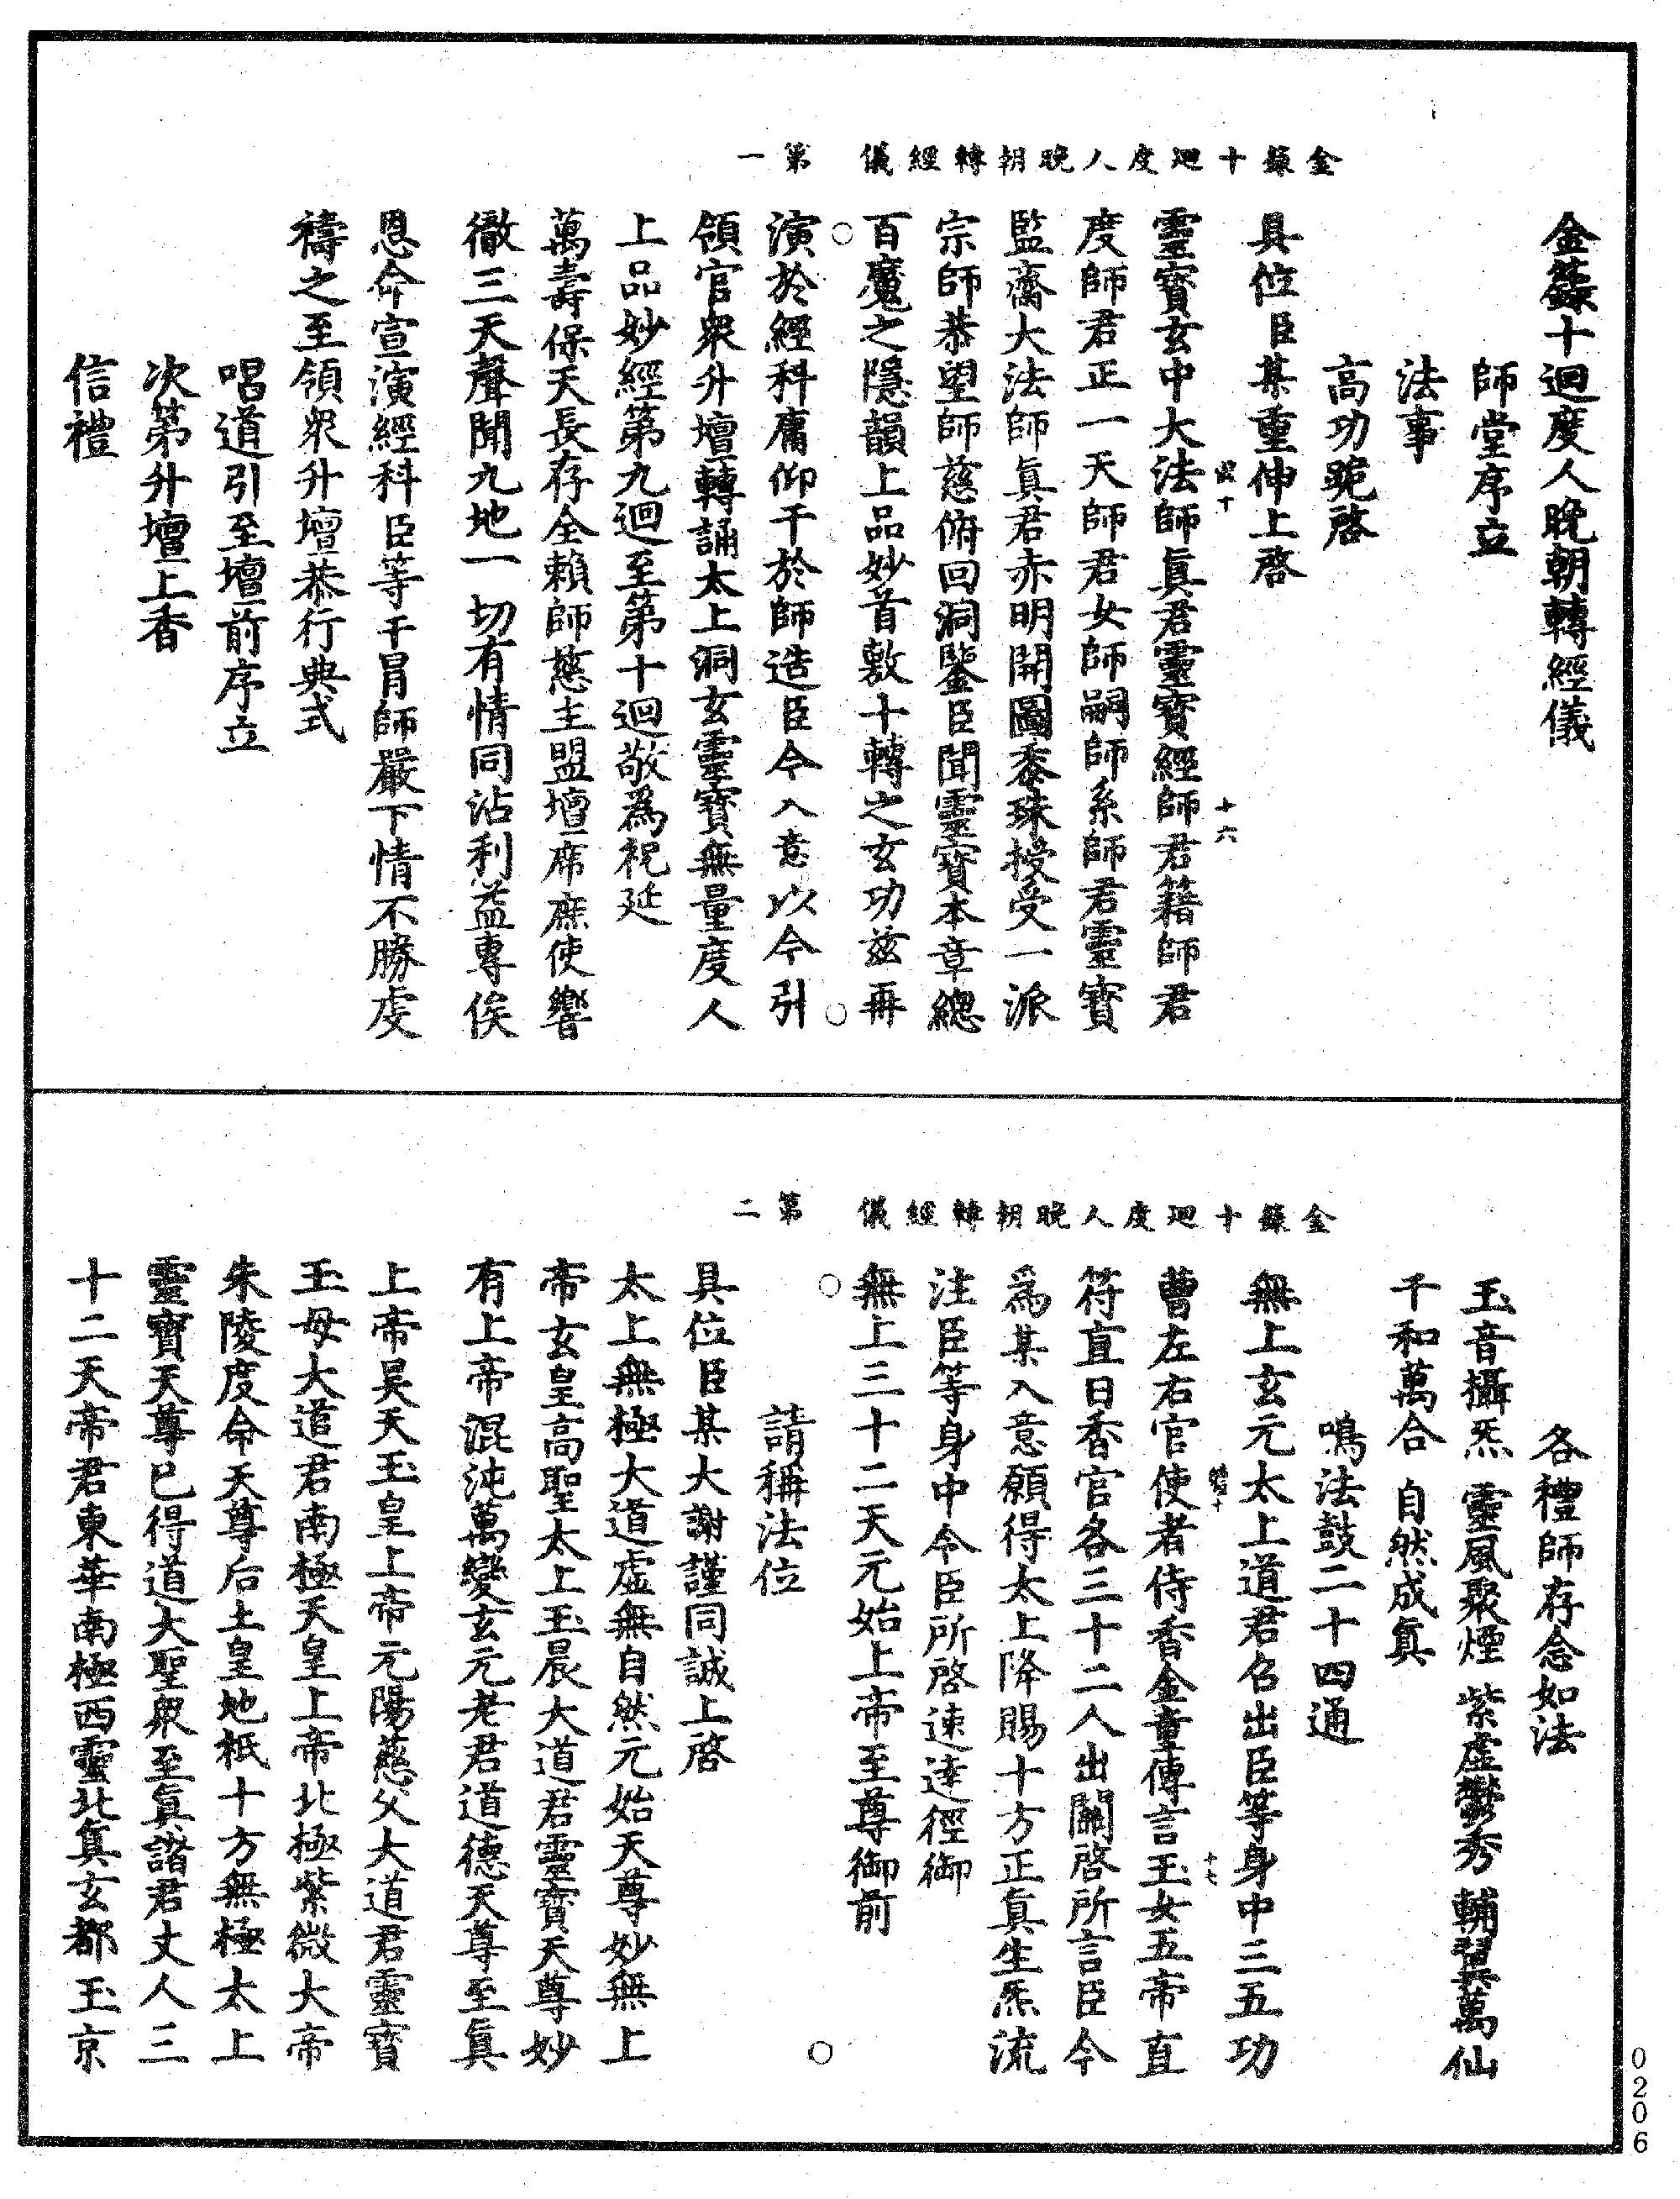 金籙十迴度人晚朝轉經儀　第一
金籙十迴度人晚朝轉經儀
師堂序立
法事
高功跪啓
具位臣某重伸上啓
十六
靈寶玄中大法師真君靈寶經師君籍師君
度師君正一天師君女師嗣師系師君靈寶
監齋大法師真君赤明開圖黍珠授受一派
宗師恭望師慈俯回洞鑒臣聞靈寶本章總
百魔之隱韻上品妙首敷十轉之玄功兹再
演於經科庸仰干於師造臣今入意以今引
領官衆升壇轉誦太上洞玄靈寶無量度人
上品妙經第九迴至第十迴敬爲祝延
萬壽保天長存全賴師慈主盟壇席庶使響
徹三天聲聞九地一切有情同沾利益專俟
恩命宣演經科臣等干冒師嚴下情不勝虔
禱之至領衆升壇恭行典式
唱道引至壇前序立
次第升壇上香
信禮
金籙十迴度人晚朝轉經儀　第二
各禮師存念如法
玉音攝炁　靈風聚煙　紫虛鬱秀　輔翼萬仙
千和萬合　自然成真
鳴法鼓二十四通
無上玄元太上道君召出臣等身中三五功
十七
曹左右官使者侍香金童傳言玉女五帝直
符直日香官各三十二人出關啓所言臣今
爲某入意願得太上降賜十方正真生炁流
注臣等身中令臣所啓速達徑御
無上三十二天元始上帝至尊御前
請稱法位
具位臣某大謝謹同誠上啓
太上無極大道虛無自然元始天尊妙無上
帝玄皇高聖太上玉晨大道君靈寶天尊妙
有上帝混沌萬變玄元老君道德天尊至真
上帝昊天玉皇上帝元陽慈父大道君靈寶
王母大道君南極天皇上帝北極紫微大帝
朱陵度命天尊后土皇地祇十方無極太上
靈寶天尊已得道大聖衆至真諸君丈人三
十二天帝君東華南極西靈北真玄都玉京
0206